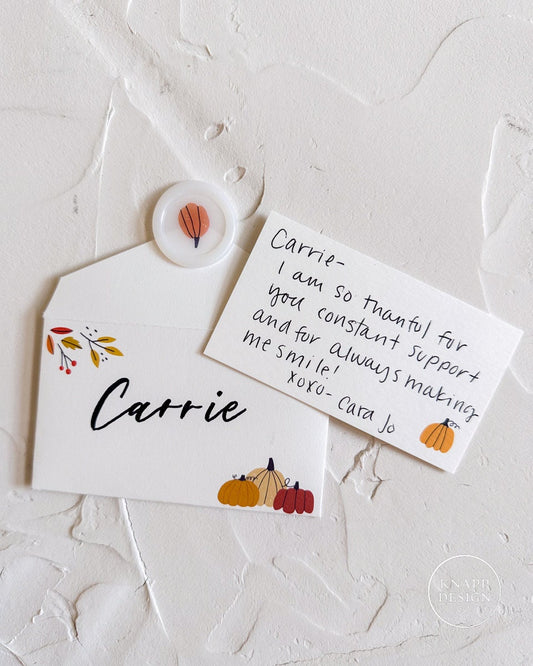 Carrie
Carrie-
I am so thanful for
you constant support
and for always making
me smile!
xoxo- Cara Jo
KNAPP
DESIGN